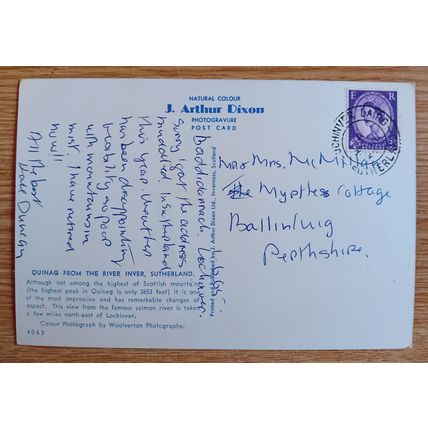 NATURAL COLOUR
J. Arthur Dixon
PHOTOGRAVURE
POST CARD
Baddidarrach, Lochinver.
Sorry I got the address
muddled in Sutherland
this year. Weather
has been disappointing
with mountains in
mist. I have retired
now!!
All the best
Dave Duncan
QUINAG FROM THE RIVER INVER, SUTHERLAND.
Although not among the highest of Scottish mountains
(the highest peak in Quinag is only 2653 feet) it is one
of the most impressive and has remarkable changes of
aspect. This view from the famous salmon river is taken
a few miles north-east of Lochinver.
Colour Photograph by Woolverton Photography.
4063
Arthur Dixon Ltd., Inverness, Scotland
E R
LOCHINVER LAIRG
SUTHERLAND
Mr & Mrs. McMillan
The Myrtles Cottage
Ballinluig
Perthshire.